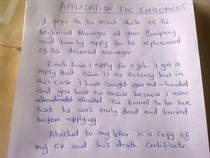 APPLICATION FOR EMPLOYMENT
I refer to the recent death of the
technical Manager at your Company
and hereby apply for the replacement
of the deceased manager.
Each time I apply for a job, I get a
reply that there is no vacancy but in
this case I have caught you red-handed
and you have no excuse because I even
attended the funeral to be sure
that he was truly dead and buried
before applying.
Attached to my letter is a copy of
my CV and his death certificate.